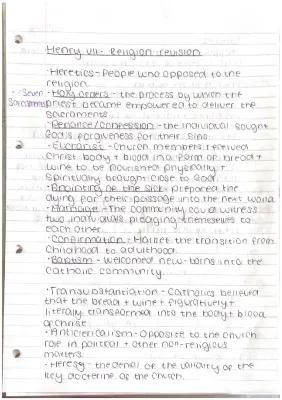 Henry VII - Religion revision
· Heretics - People who opposed to the
religion.
· Seven Sacraments
· Holy orders - the process by which the
priest became empowered to deliver the
sacraments.
· Penance/Confession - the individual sought
God's forgiveness for their sins.
· Eucharist - Church members received
Christ body + blood in a form of bread +
wine to be nourished physically +
spiritually brought close to God.
· Anointing of the sick - prepared the
dying for their passage into the next world.
· Marriage - The community could witness
two individuals pledging themselves to
each other.
· Confirmation - Marked the transition from
childhood to adulthood.
· Baptism - welcomed new-borns into the
Catholic community.
· Transubstantiation - Catholics believed
that the bread + wine + figuratively +
literally transformed into the body + blood
of christ.
· Anticlericalism - Opposite to the church
role in political + other non-religious
matters.
· Heresy - the denial of the validity of the
key doctrine of the church.